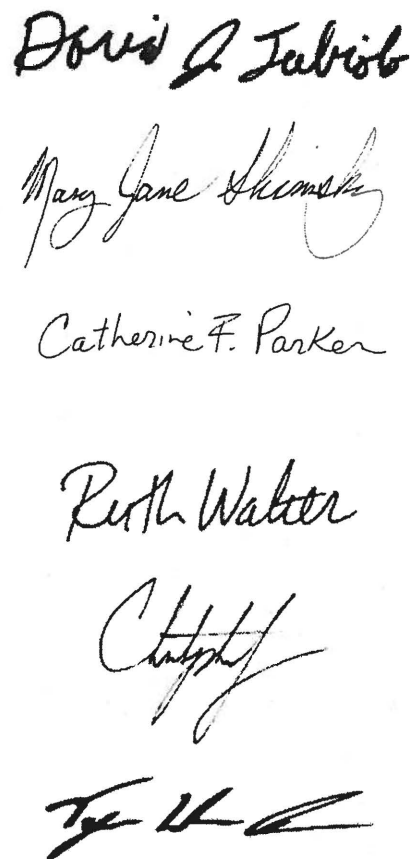 David J. Tubiolo
Mary Jane Shimsky
Catherine F. Parker
Ruth Walter
Christopher